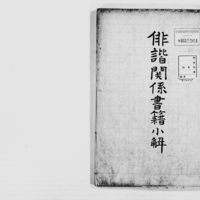 俳諧関係書籍小解